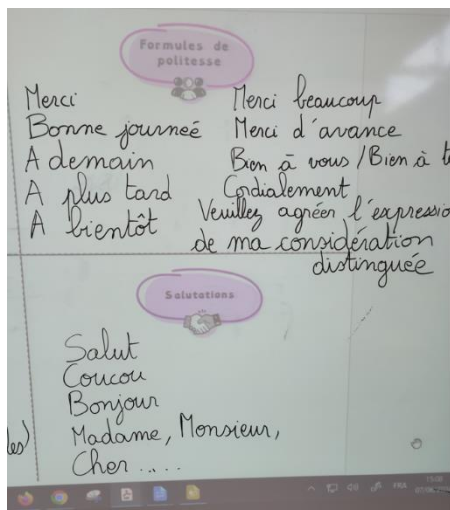 Formules de
politesse
Merci
Bonne journeé
A demain
A plus tard
A bientôt
Merci beaucoup
Merci d'avance
Bien à vous / Bien à
Cordialement
Veuillez agréer l'expressio
de ma considération
distinguée
Salutations
Salut
Coucou
Bonjour
Madame, Monsieur,
Cher .....
les)
FRA
15:00